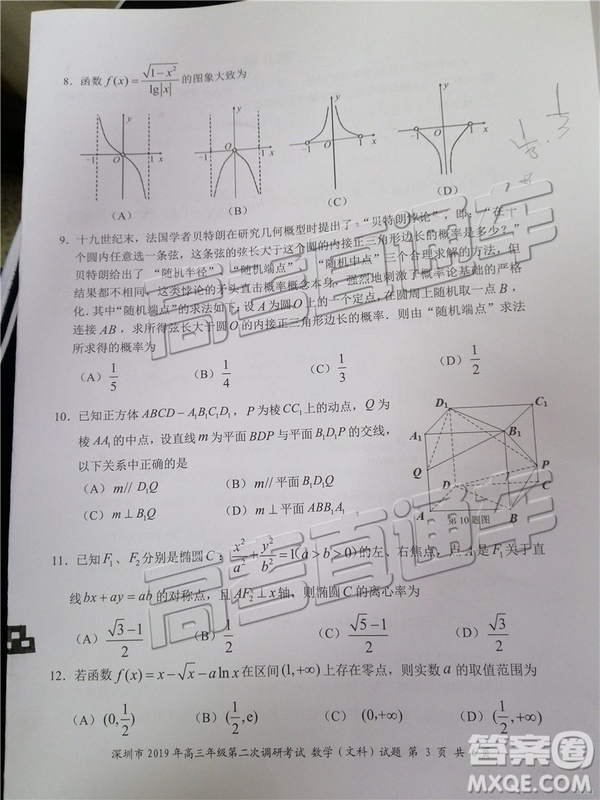 8. 函数 f(x)=√(1-x²)/lg|x| 的图象大致为
y y y y
-1 O 1 x -1 O 1 x -1 O 1 x -1 O 1 x
(A) (B) (C) (D)
1/3 · 1/3
9. 十九世纪末，法国学者贝特朗在研究几何概型时提出了“贝特朗悖论”，即：“在一
个圆内任意选一条弦，这条弦的弦长大于这个圆的内接正三角形边长的概率是多少？”
贝特朗给出了“随机半径”、“随机端点”、“随机中点”三个合理的求解方法，但
结果都不相同．这类悖论的矛头直击概率概念本身，强烈地刺激了概率论基础的严格
化．其中“随机端点”的求法如下：设 A 为圆 O 上的一个定点，在圆周上随机取一点 B，
连接 AB，求所得弦长大于圆 O 的内接正三角形边长的概率．则由“随机端点”求法
所求得的概率为
(A) 1/5 (B) 1/4 (C) 1/3 (D) 1/2
10. 已知正方体 ABCD-A₁B₁C₁D₁，P 为棱 CC₁ 上的动点，Q 为
棱 AA₁ 的中点，设直线 m 为平面 BDP 与平面 B₁D₁P 的交线，
以下关系中正确的是
(A) m// D₁Q (B) m// 平面 B₁D₁Q
(C) m⊥B₁Q (D) m⊥平面 ABB₁A₁
D₁ C₁
A₁ B₁
Q P
D C
A B
第10题图
11. 已知 F₁、F₂ 分别是椭圆 C：x²/a²+y²/b²=1(a>b>0) 的左、右焦点，点 A 是 F₁ 关于直
线 bx+ay=ab 的对称点，且 AF₂⊥x 轴，则椭圆 C 的离心率为
(A) (√3-1)/2 (B) 1/2 (C) (√5-1)/2 (D) √3/2
12. 若函数 f(x)=x-√x-a ln x 在区间 (1,+∞) 上存在零点，则实数 a 的取值范围为
(A) (0,1/2) (B) (1/2,e) (C) (0,+∞) (D) (1/2,+∞)
深圳市 2019 年高三年级第二次调研考试 数学（文科）试题 第 3 页 共 6 页
高考直通车
高考直通车
答案圈
MXEQE.COM